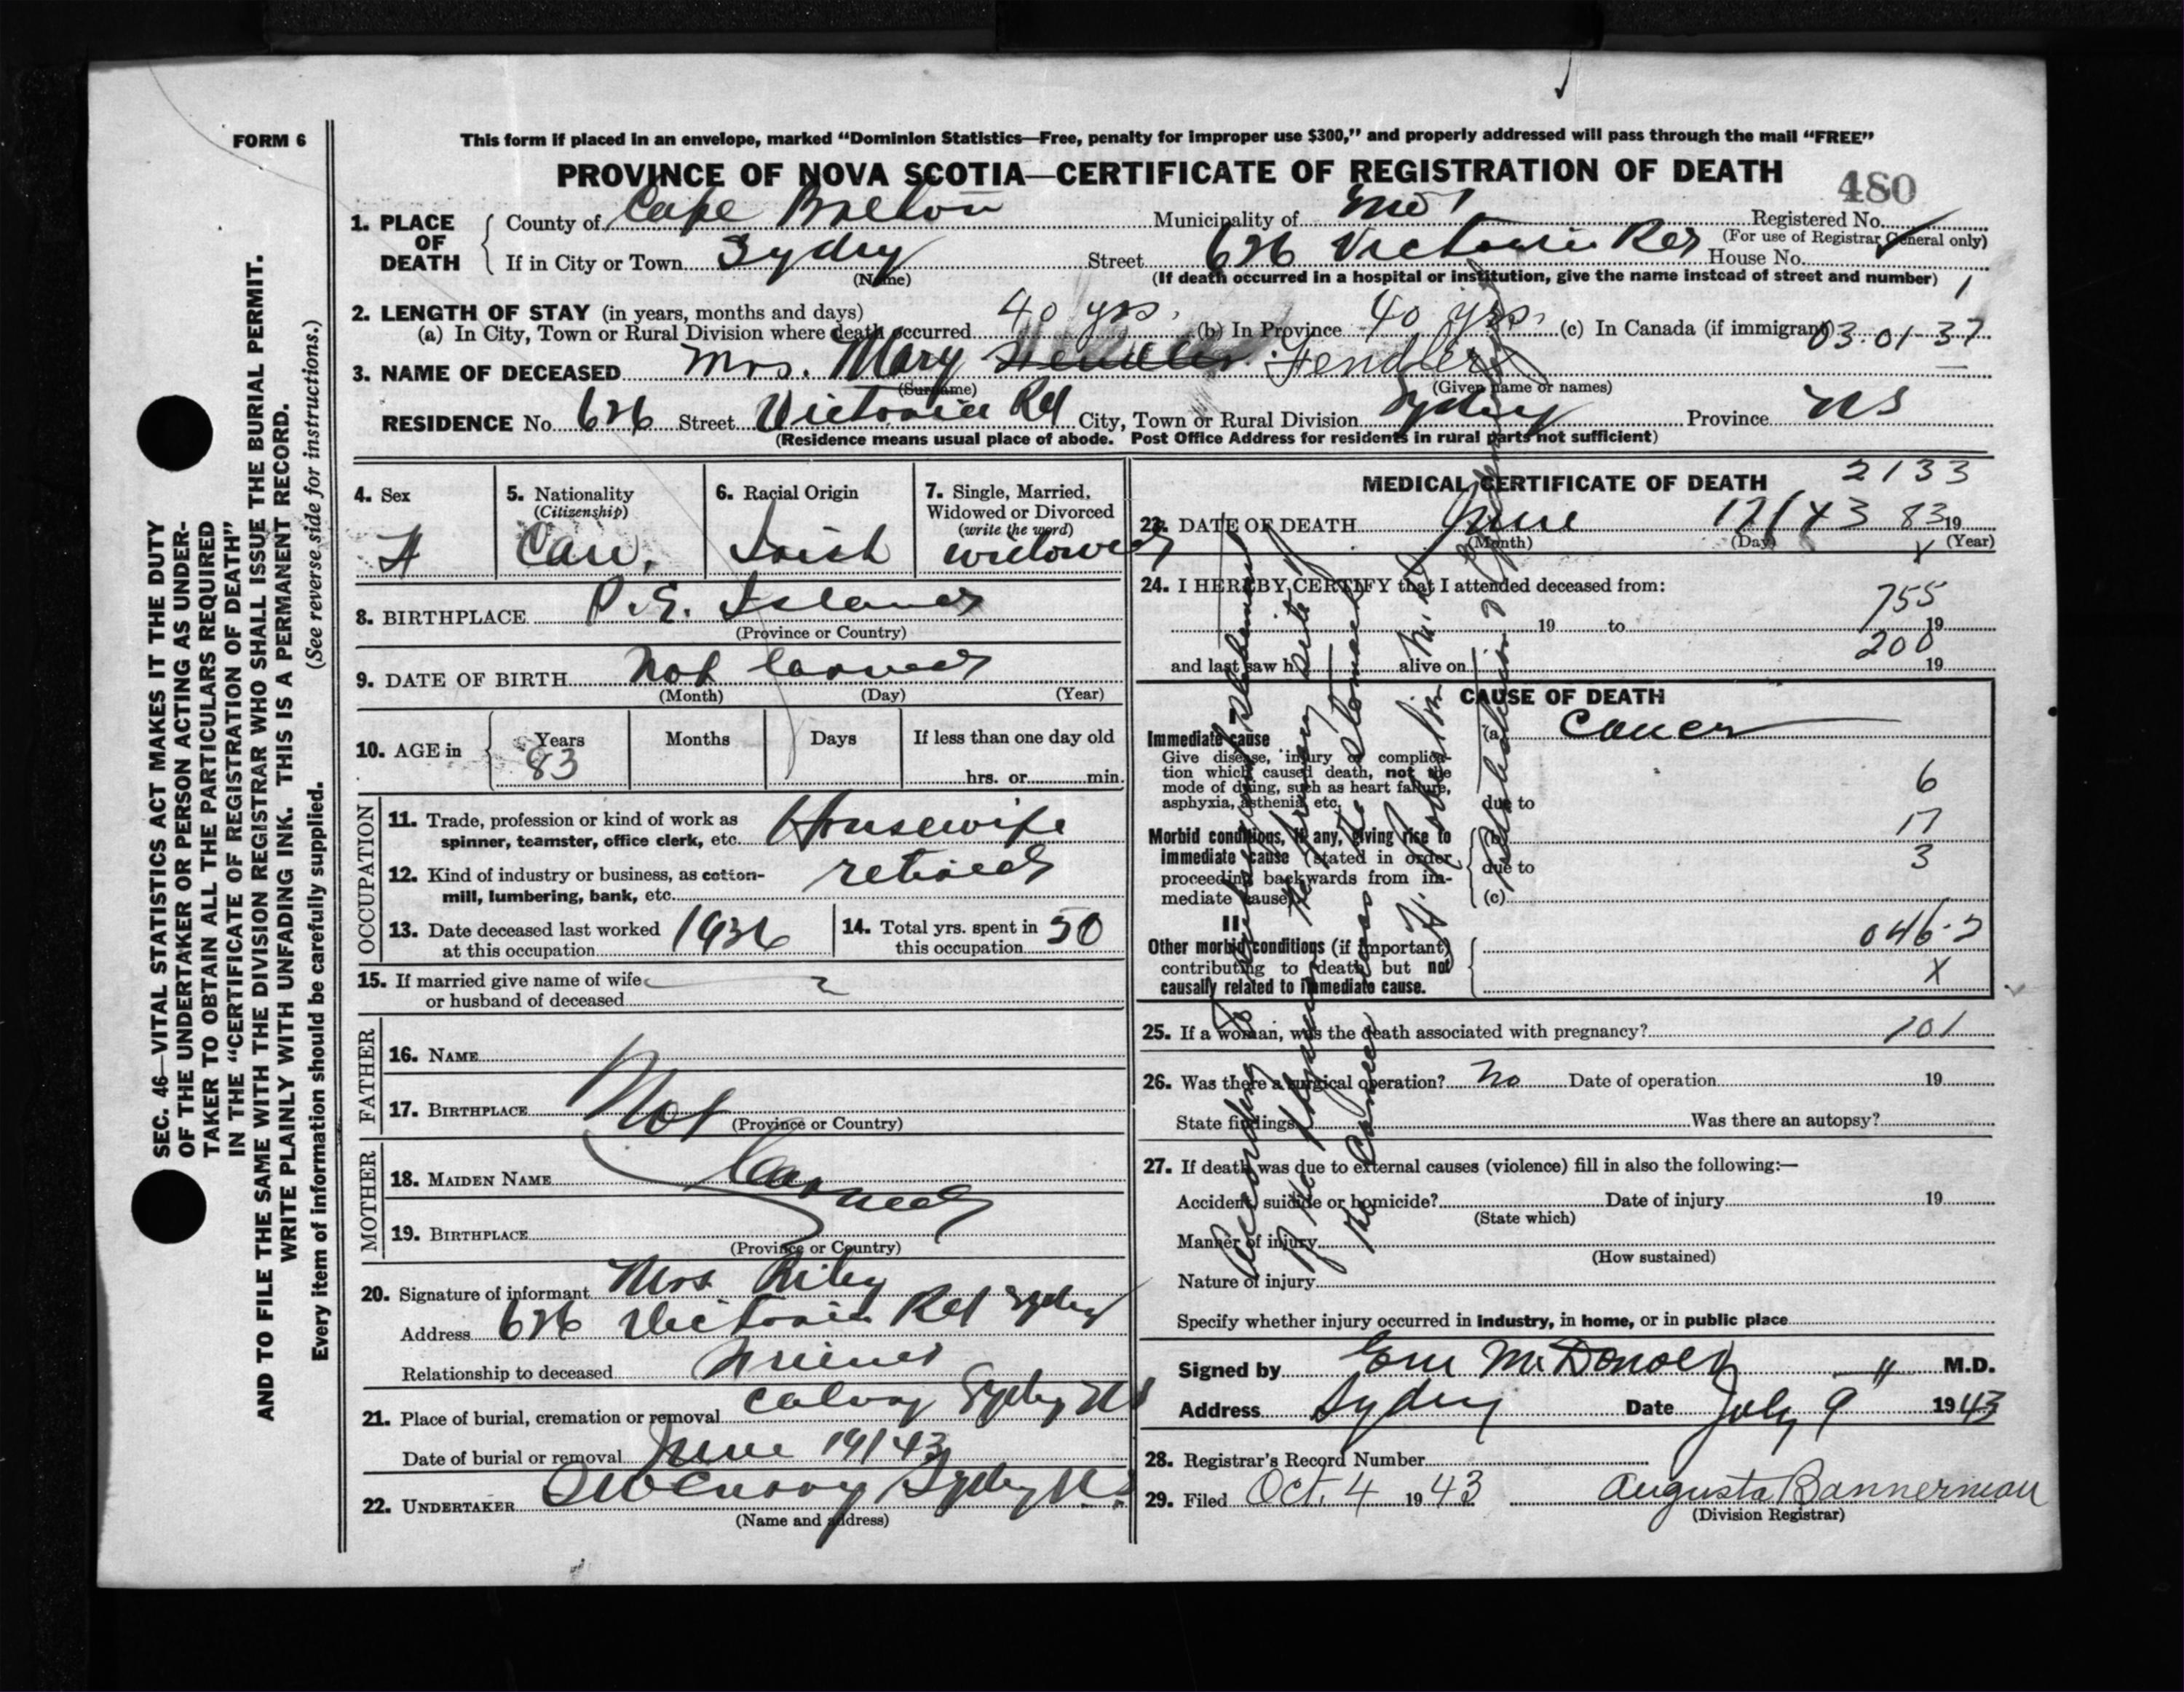 FORM 6
This form if placed in an envelope, marked "Dominion Statistics—Free, penalty for improper use $300," and properly addressed will pass through the mail "FREE"
PROVINCE OF NOVA SCOTIA—CERTIFICATE OF REGISTRATION OF DEATH
480
1. PLACE OF DEATH
County of Cape Breton Municipality of Registered No.
(For use of Registrar General only)
If in City or Town Sydney Street 626 Victoria Rd House No.
(Name)
(If death occurred in a hospital or institution, give the name instead of street and number) 1
2. LENGTH OF STAY (in years, months and days)
(a) In City, Town or Rural Division where death occurred 40 yrs. (b) In Province 40 yrs. (c) In Canada (if immigrant) 03.01 37
3. NAME OF DECEASED Mrs. Mary Fendler
(Surname) (Given name or names)
RESIDENCE No. 626 Street Victoria Rd City, Town or Rural Division Sydney Province NS
(Residence means usual place of abode. Post Office Address for residents in rural parts not sufficient)
4. Sex F
5. Nationality (Citizenship) Can.
6. Racial Origin Irish
7. Single, Married, Widowed or Divorced (write the word) widowed
8. BIRTHPLACE P.E. Island
(Province or Country)
9. DATE OF BIRTH Not
(Month) (Day) (Year)
10. AGE in Years 83 Months Days If less than one day old
hrs. or min.
OCCUPATION
11. Trade, profession or kind of work as spinner, teamster, office clerk, etc. Housewife
12. Kind of industry or business, as cotton-mill, lumbering, bank, etc. retired
13. Date deceased last worked at this occupation 1936
14. Total yrs. spent in this occupation 50
15. If married give name of wife or husband of deceased
FATHER
16. NAME
17. BIRTHPLACE Not
(Province or Country)
MOTHER
18. MAIDEN NAME
19. BIRTHPLACE
(Province or Country)
20. Signature of informant Mrs. Riley
Address 626 Victoria Rd Sydney
Relationship to deceased Friend
21. Place of burial, cremation or removal Calvary Sydney NS
Date of burial or removal June 19/43
22. UNDERTAKER Sydney N.S.
(Name and address)
MEDICAL CERTIFICATE OF DEATH 2133
23. DATE OF DEATH June 17/43 83 19
(Month) (Day) (Year)
X
24. I HEREBY CERTIFY that I attended deceased from:
755
19 to 19
200
and last saw h alive on 19
CAUSE OF DEATH
Immediate cause (a) Cancer
Give disease, injury or complication which caused death, not the mode of dying, such as heart failure, asphyxia, asthenia, etc.
due to 6
Morbid conditions, if any, giving rise to immediate cause (stated in order proceeding backwards from immediate cause).
(b) 17
due to 3
(c)
II
Other morbid conditions (if important) contributing to death but not causally related to immediate cause.
046.2
X
25. If a woman, was the death associated with pregnancy? 101
26. Was there a surgical operation? No Date of operation 19
State findings Was there an autopsy?
27. If death was due to external causes (violence) fill in also the following:—
Accident, suicide or homicide? Date of injury 19
(State which)
Manner of injury
(How sustained)
Nature of injury
Specify whether injury occurred in industry, in home, or in public place
Signed by McDonald M.D.
Address Sydney Date July 9 1943
28. Registrar's Record Number
29. Filed Oct. 4 1943 Augusta Bannerman
(Division Registrar)
According to
of the Physician the primary site
the Cancer was the stomach
SEC. 46—VITAL STATISTICS ACT MAKES IT THE DUTY
OF THE UNDERTAKER OR PERSON ACTING AS UNDER-
TAKER TO OBTAIN ALL THE PARTICULARS REQUIRED
IN THE "CERTIFICATE OF REGISTRATION OF DEATH"
AND TO FILE THE SAME WITH THE DIVISION REGISTRAR WHO SHALL ISSUE THE BURIAL PERMIT.
WRITE PLAINLY WITH UNFADING INK. THIS IS A PERMANENT RECORD.
Every item of information should be carefully supplied. (See reverse side for instructions.)